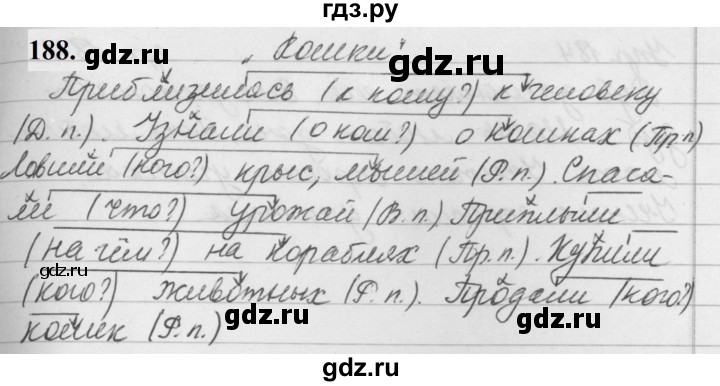 гдз.ру
188. „Кошки"
gdz.ru
gdz.ru
Приблизилась (к кому?) к человеку
(Д. п.). Узнали (о ком?) о кошках (Пр.п)
Ловили (кого?) крыс, мышей (Р.п.). Спаса-
gdz.ru
ли (что?) урожай (В.п.). Приплыли
(на чём?) на кораблях (Пр.п.). Купили
gdz.ru
(кого?) животных (Р.п.). Продали (кого?)
gdz.ru
gdz.ru
кошек (Р.п.)
gdz.ru